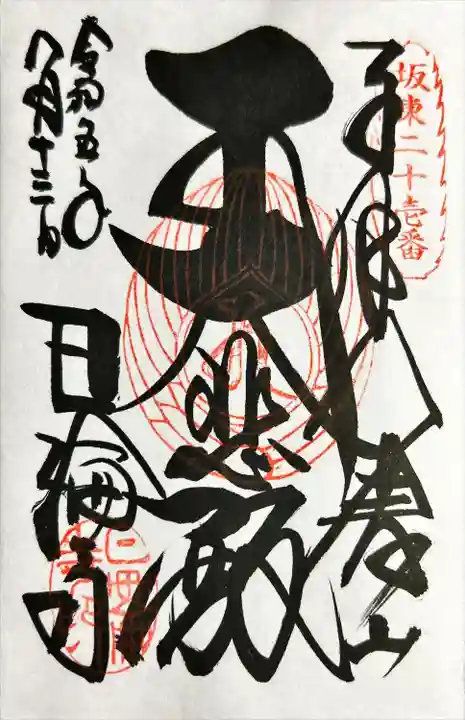 坂東二十壱番
八溝山
大悲殿
令和五年
八月十三日
日輪寺